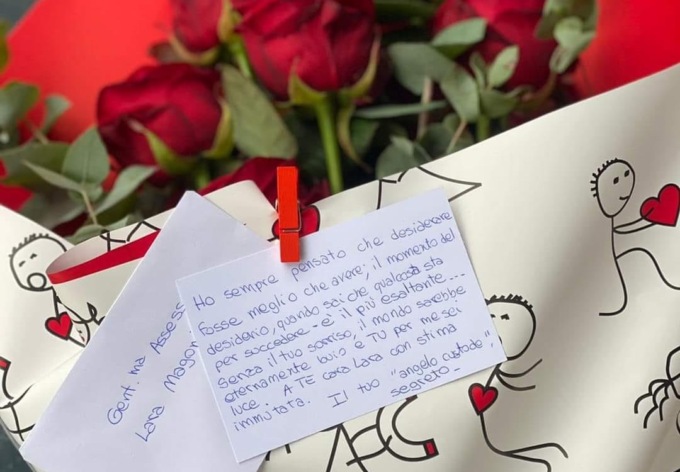 Ho sempre pensato che desiderare
fosse meglio che avere; il momento del
desiderio, quando sai che qualcosa sta
per succedere - è il più esaltante...
Senza il tuo sorriso, il mondo sarebbe
eternamente buio e TU per me sei
luce. A TE cara Lara con stima
immutata. Il tuo "angelo custode"
segreto-
Gent.ma Assess
Lara Magon